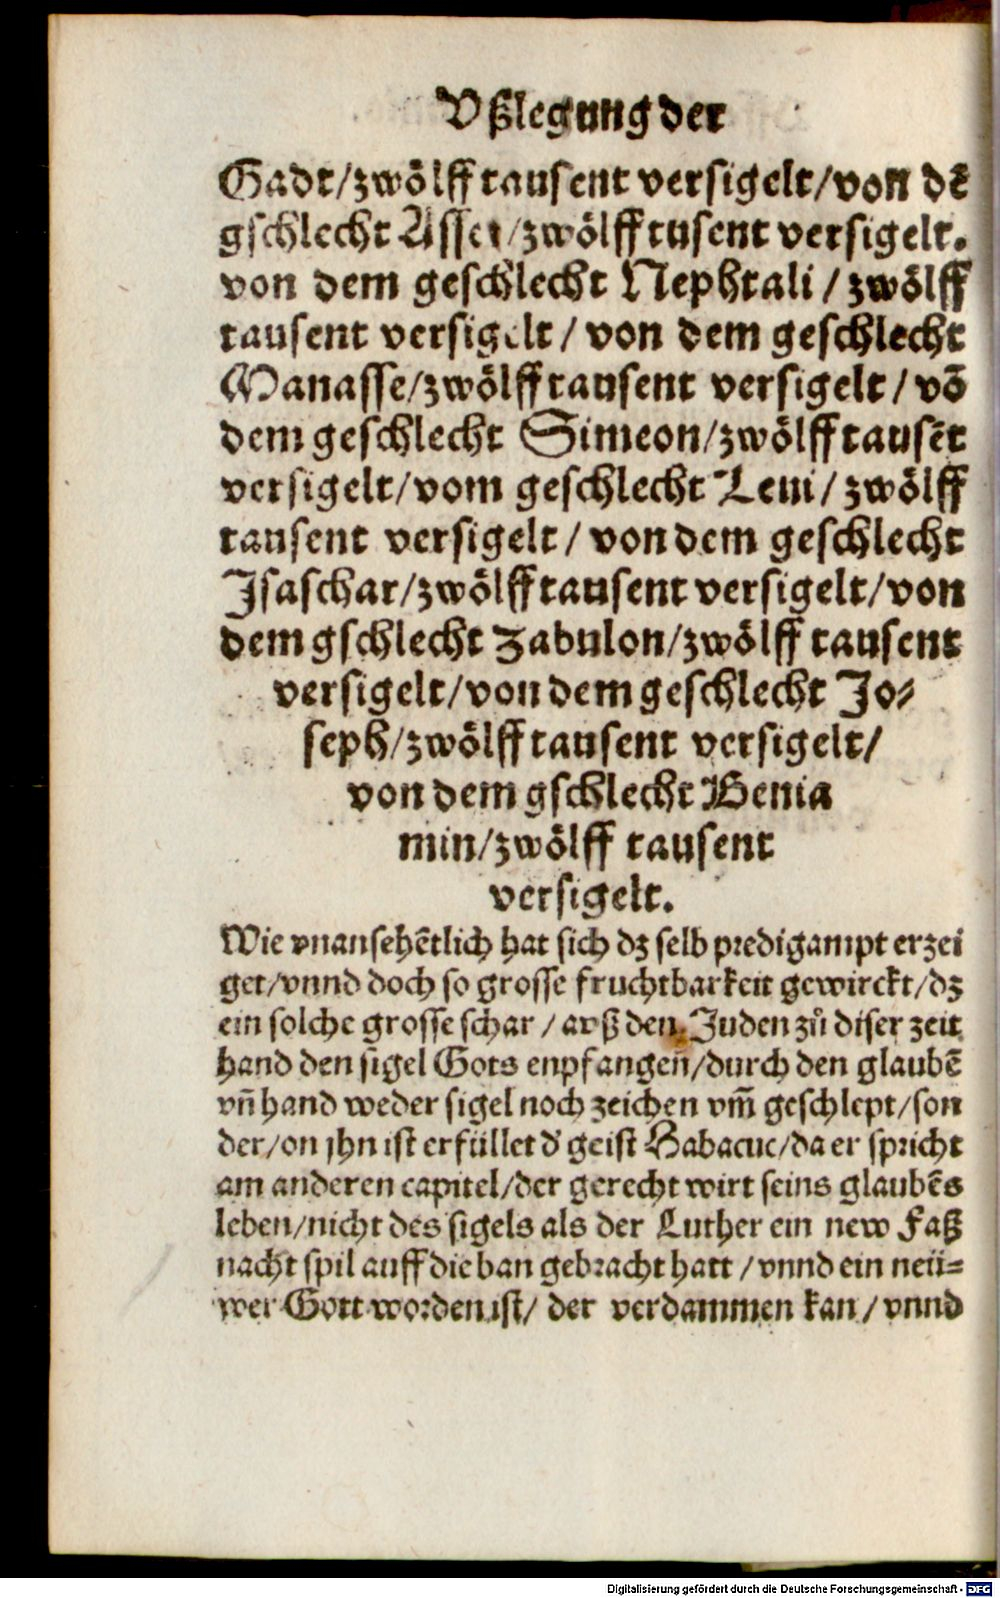 Vßlegung der
Gadt/zwölff tausent versigelt/von dē
gschlecht Asser/zwölff tusent versigelt.
von dem geschlecht Nephtali / zwölff
tausent versigelt / von dem geschlecht
Manasse/zwölff tausent versigelt / vō
dem geschlecht Simeon/zwölff tausēt
versigelt/vom geschlecht Leui/ zwölff
tausent versigelt / von dem geschlecht
Isaschar/zwölff tausent versigelt/von
dem gschlecht Zabulon/zwölff tausent
versigelt/von dem geschlecht Jo⸗
seph/zwölff tausent versigelt/
von dem gschlecht Benia
min/zwölff tausent
versigelt.
Wie vnansehētlich hat sich dz selb predigampt erzei
get/vnnd doch so grosse fruchtbarkeit gewirckt/dz
ein solche grosse schar / avß den Juden zů diser zeit
hand den sigel Gots enpfangen/durch den glaubē
vn̄ hand weder sigel noch zeichen vm̄ geschlept/son
der/on jhn ist erfüllet d' geist Habacuc/da er spricht
am anderen capitel/der gerecht wirt seins glaubēs
leben/nicht des sigels als der Luther ein new Faß
nacht spil auff die ban gebracht hatt / vnnd ein neü⸗
wer Gott worden ist/ der verdammen kan / vnnd
Digitalisierung gefördert durch die Deutsche Forschungsgemeinschaft - DFG